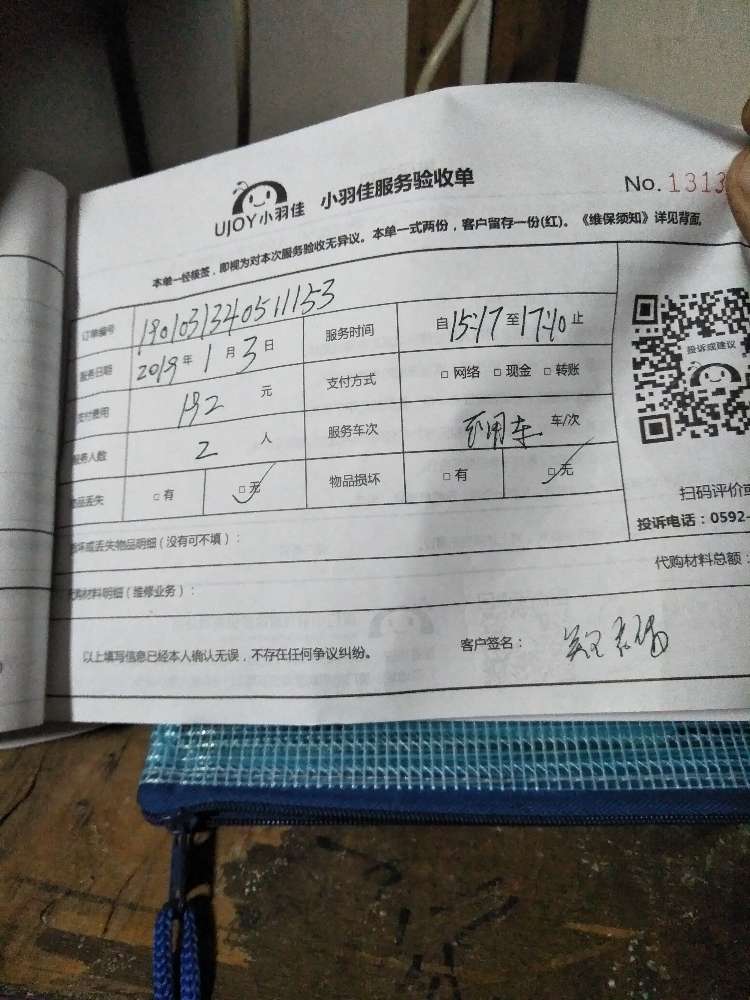 UJOY小羽佳 小羽佳服务验收单 No. 1313
本单一经核签，即视为对本次服务验收无异议。本单一式两份，客户留存一份(红)。《维保须知》详见背面
订单编号 1901031340511153 服务时间 自15:17至17:10止
服务日期 2019年1月3日 支付方式 □网络 □现金 □转账
支付费用 192元
服务人数 2人 服务车次 不用车 车/次
物品丢失 □有 □无 物品损坏 □有 □无
投诉或建议
扫码评价或
投诉电话：0592-
损坏或丢失物品明细（没有可不填）：
代购材料明细（维修业务）： 代购材料总额：
以上填写信息已经本人确认无误，不存在任何争议纠纷。 客户签名：